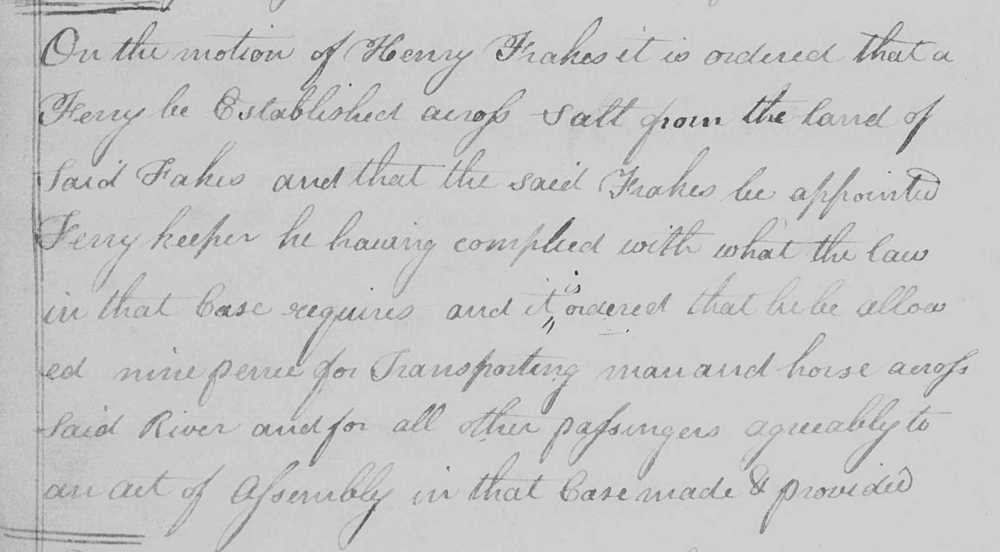 On the motion of Henry Frakes it is ordered that a
Ferry be Established across Salt from the land of
Said Fakes and that the said Frakes be appointed
Ferry keeper he having complied with what the law
in that Case requires and it is ordered that he be allow
ed nine pence for Transporting man and horse across
Said River and for all other passingers agreeably to
an act of Assembly in that Case made & provided